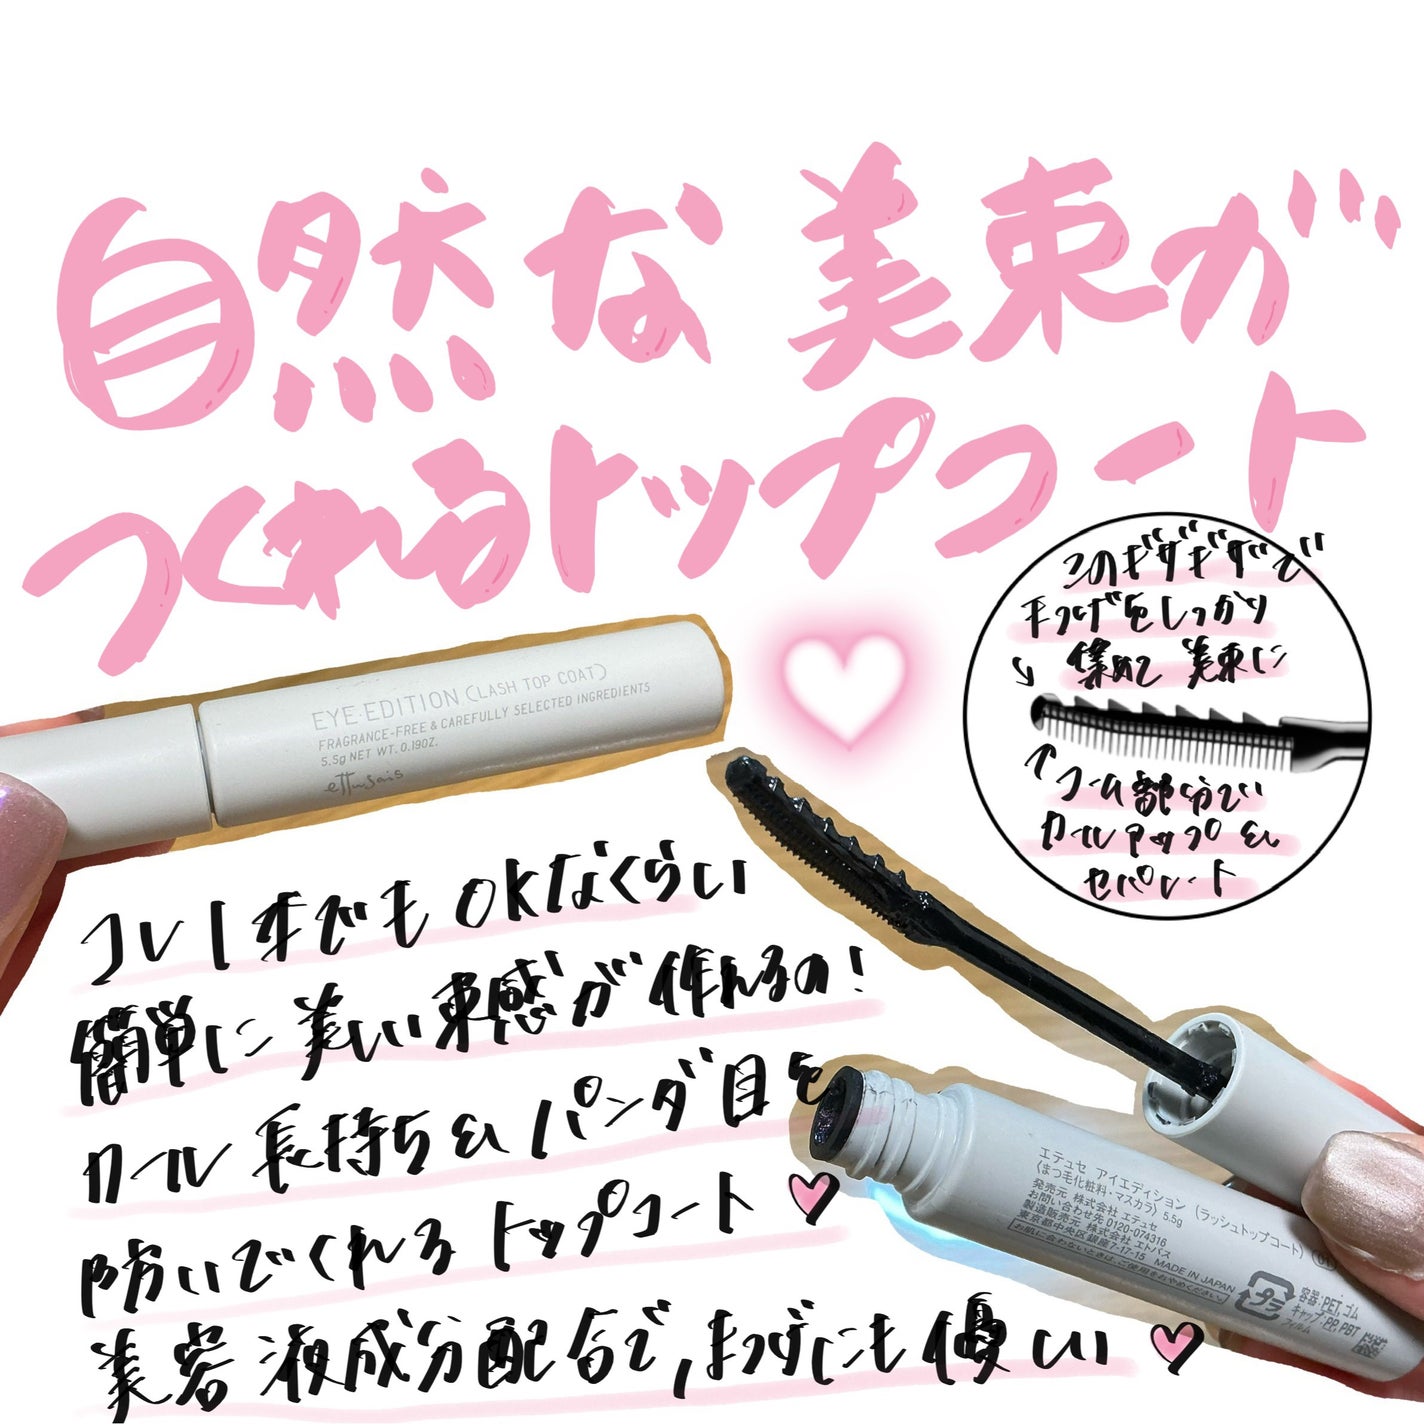 自然な美束が
つくれるトップコート
EYE・EDITION (LASH TOP COAT)
FRAGRANCE-FREE & CAREFULLY SELECTED INGREDIENTS
5.5g NET WT. 0.19OZ.
ettusais
このギザギザで
まつげをしっかり
集めて美束に
コーム部分で
カールアップ&
セパレート
コレ1本でもOKなくらい
簡単に美しい束感が作れるの!
カール長持ち&パンダ目を
防いでくれるトップコート
美容液成分配合で,まつげにも優しい
エテュセ アイエディション (ラッシュトップコート) (01)
〈まつ毛化粧料・マスカラ〉 5.5g
発売元 株式会社 エテュセ
お問い合わせ先 0120-074316
製造販売元 株式会社 エトバス
東京都中央区銀座7-17-15 MADE IN JAPAN
お肌に合わないときは、ご使用をおやめください。
プラ
容器:PET, ゴム
キャップ:PP, PBT
フィルム